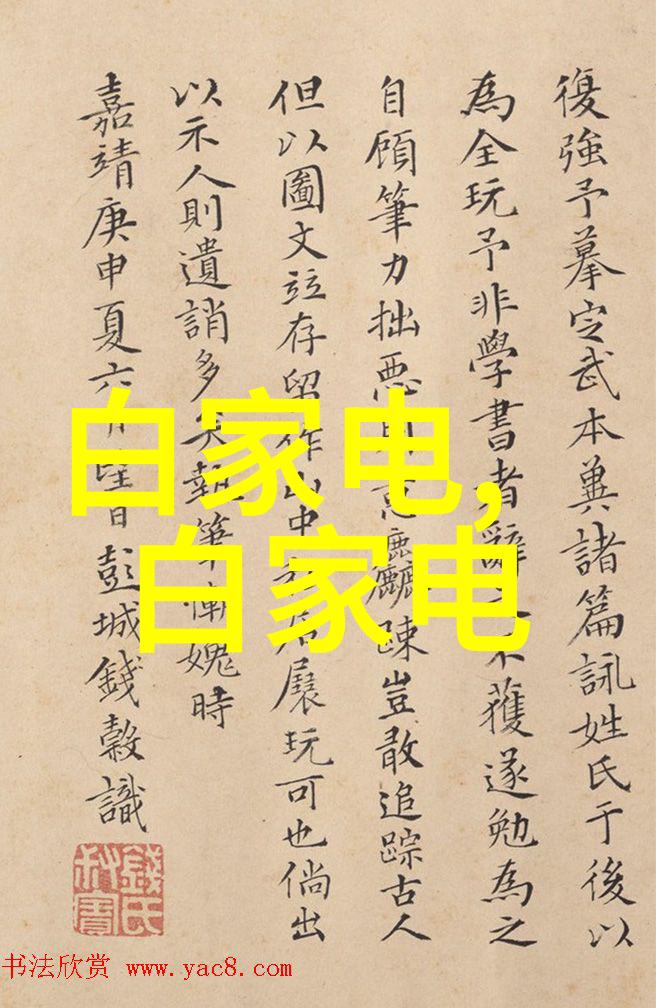 復強予摹定武本與諸篇詠姓氏于後以
為全玩予非學書者辭不獲遂勉為之
自顧筆力拙惡用意麤踈豈敢追踪古人
但以圖文竝存留作山中居展玩可也倘出
以示人則遺誚多矣執筆慚媿時
嘉靖庚申夏六月望日彭城錢榖識
錢氏叔寶
白家电,
白家电
书法欣赏 www.yac8.com